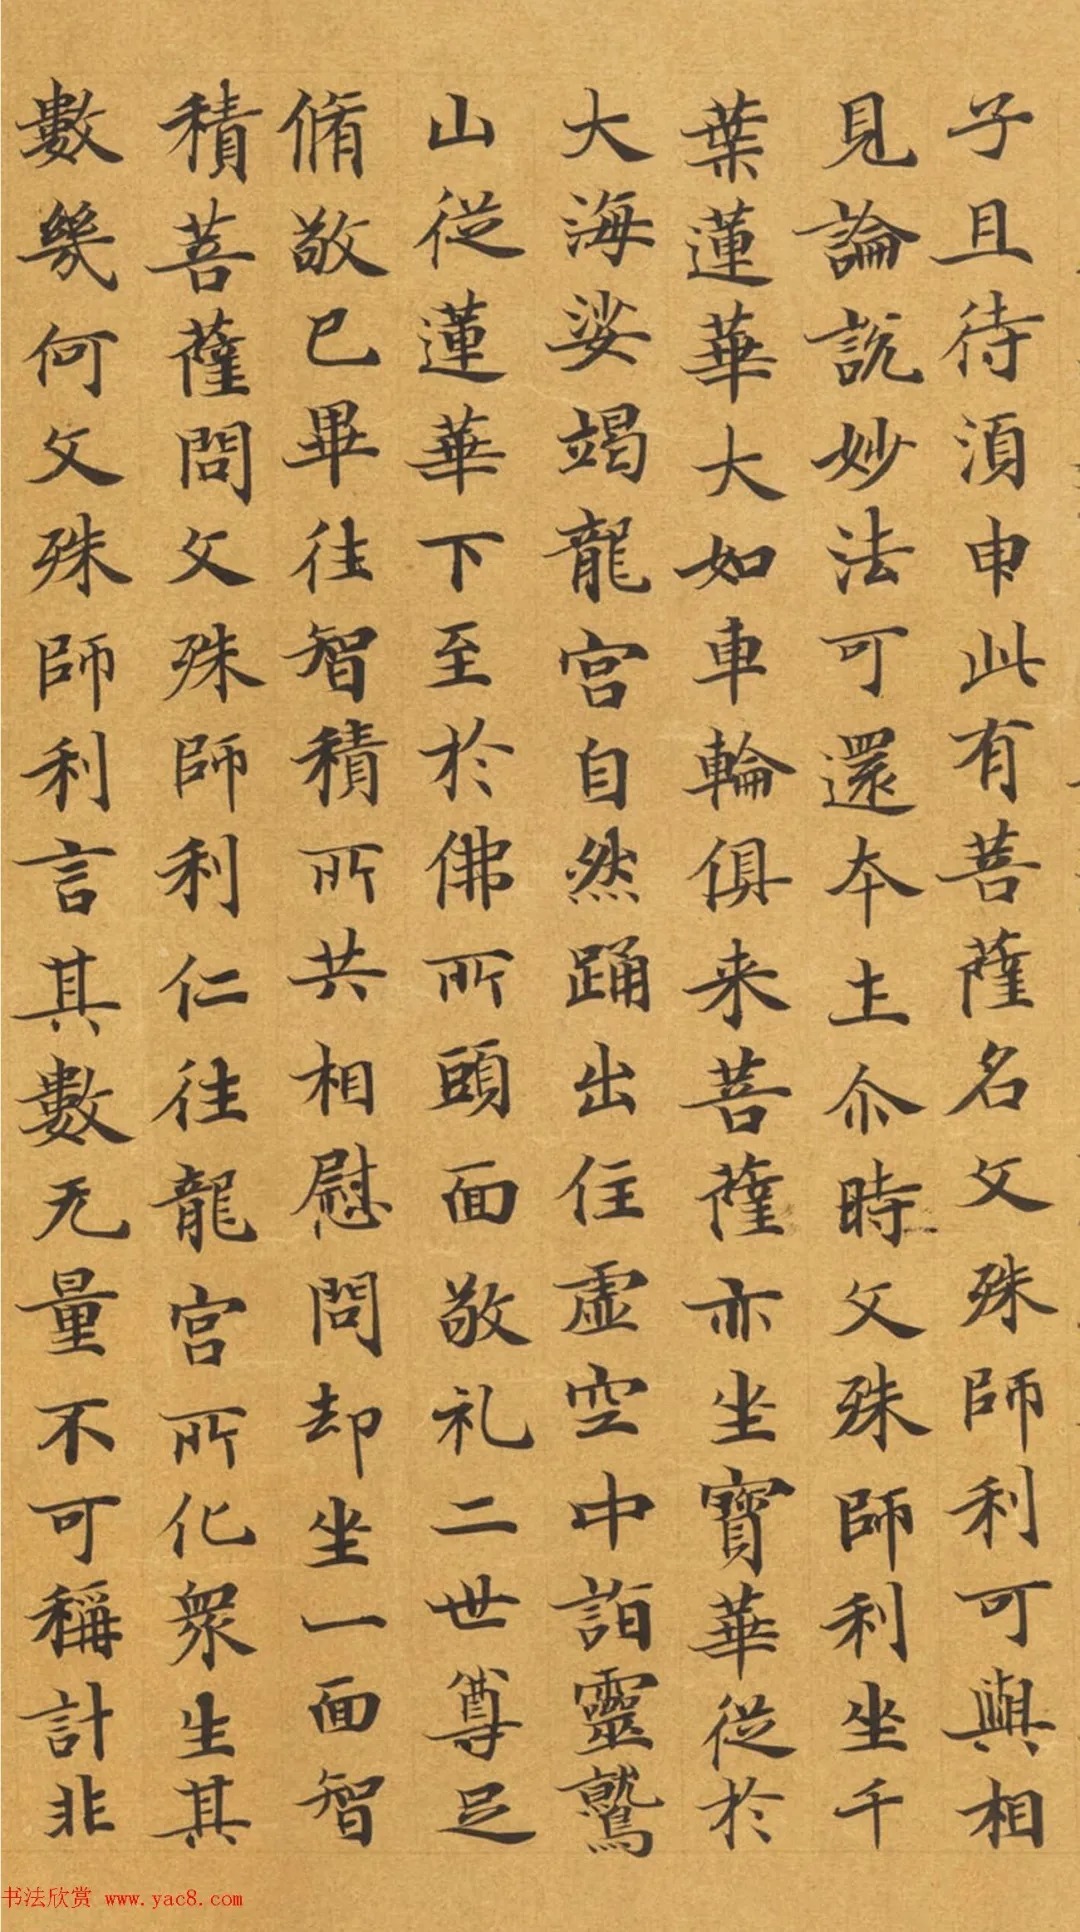 子且待須申此有菩薩名文殊師利可與相
見論説妙法可還本土尒時文殊師利坐千
葉蓮華大如車輪俱来菩薩亦坐寶華從於
大海娑竭龍宮自然踊出住虛空中詣靈鷲
山從蓮華下至於佛所頭面敬礼二世尊足
脩敬已畢往智積所共相慰問却坐一面智
積菩薩問文殊師利仁往龍宮所化衆生其
數幾何文殊師利言其數无量不可稱計非
书法欣赏 www.yac8.com